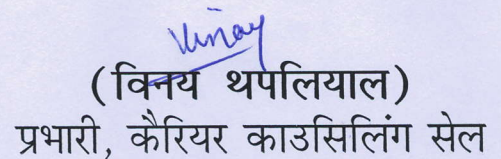 Vinay
(विनय थपलियाल)
प्रभारी, कैरियर काउसिलिंग सेल